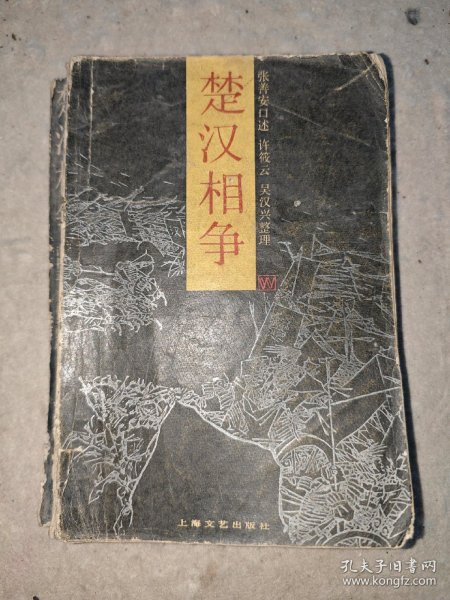 楚汉相争
张善安口述 许筱云 吴汉兴整理
W
上海文艺出版社
孔夫子旧书网
www.kongfz.com